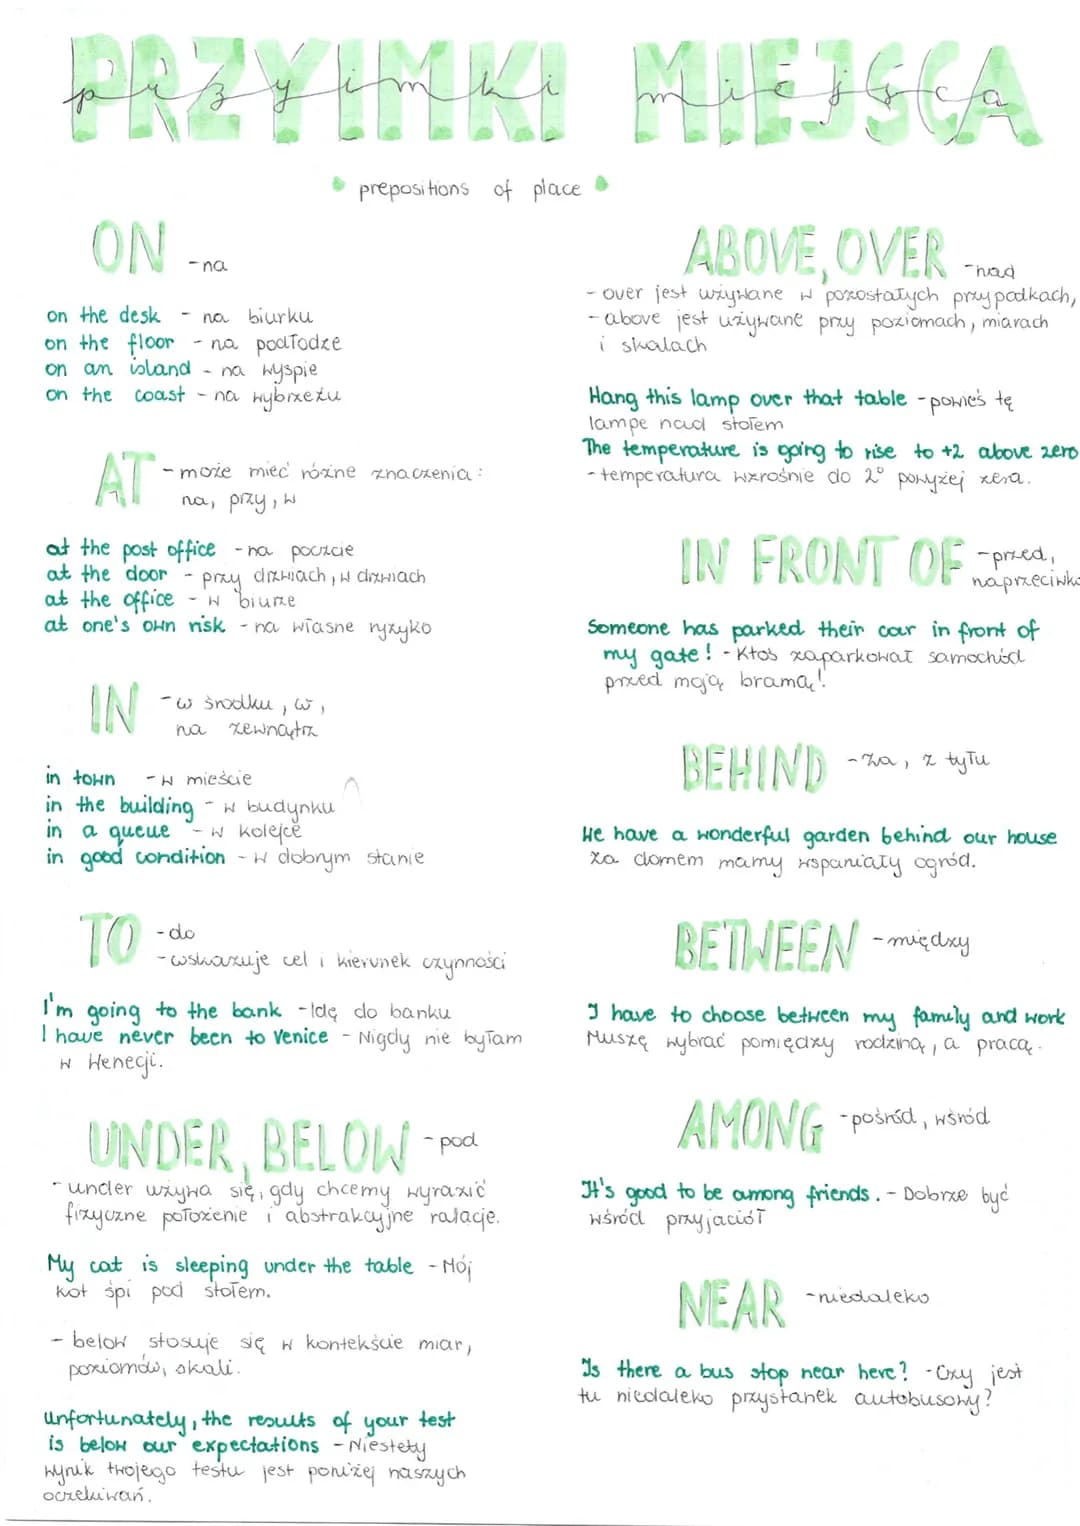 PRZYIMKI MIEJSCA
przyimki miejsca
prepositions of place
ON - na
on the desk - na biurku
on the floor - na podłodze
on an island - na wyspie
on the coast - na wybrzeżu
AT - może mieć różne znaczenia:
na, przy, w
at the post office - na poczcie
at the door - przy drzwiach, w drzwiach
at the office - w biurze
at one's own risk - na własne ryzyko
IN - w środku, w,
na zewnątrz
in town - w mieście
in the building - w budynku
in a queue - w kolejce
in good condition - w dobrym stanie
TO - do
- wskazuje cel i kierunek czynności
I'm going to the bank - Idę do banku
I have never been to Venice - Nigdy nie byłam
w Wenecji.
UNDER, BELOW - pod
- under używa się, gdy chcemy wyrazić
fizyczne położenie i abstrakcyjne ralacje.
My cat is sleeping under the table - Mój
kot śpi pod stołem.
- below stosuje się w kontekście miar,
poziomów, skali.
Unfortunately, the results of your test
is below our expectations - Niestety
wynik twojego testu jest poniżej naszych
oczekiwań.
ABOVE, OVER - nad
- over jest używane w pozostałych przypadkach,
- above jest używane przy poziomach, miarach
i skalach
Hang this lamp over that table - powieś tę
lampe nad stołem
The temperature is going to rise to +2 above zero
- temperatura wzrośnie do 2° powyżej zera.
IN FRONT OF - przed,
naprzeciwko
Someone has parked their car in front of
my gate! - Ktoś zaparkował samochód
przed moją bramą!
BEHIND - za, z tyłu
We have a wonderful garden behind our house
Za domem mamy wspaniały ogród.
BETWEEN - między
I have to choose between my family and work
Muszę wybrać pomiędzy rodziną, a pracą.
AMONG - pośród, wśród
It's good to be among friends. - Dobrze być
wśród przyjaciół
NEAR - niedaleko
Is there a bus stop near here? - Czy jest
tu niedaleko przystanek autobusowy?